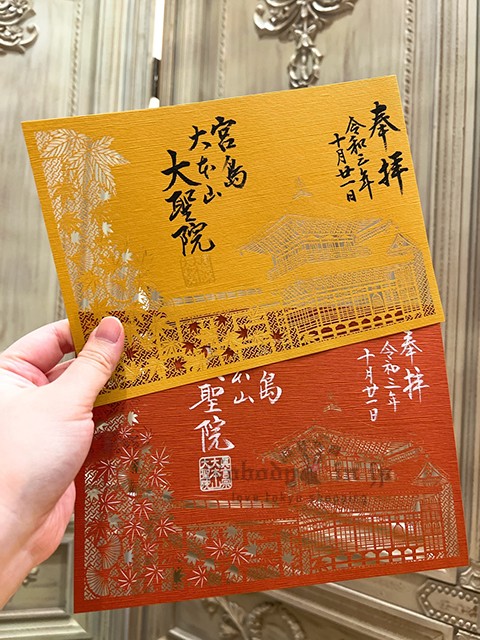 奉拝
令和三年
十月廿一日
宮島
大本山
大聖院
奉拝
令和三年
十月廿一日
島
本山
聖院